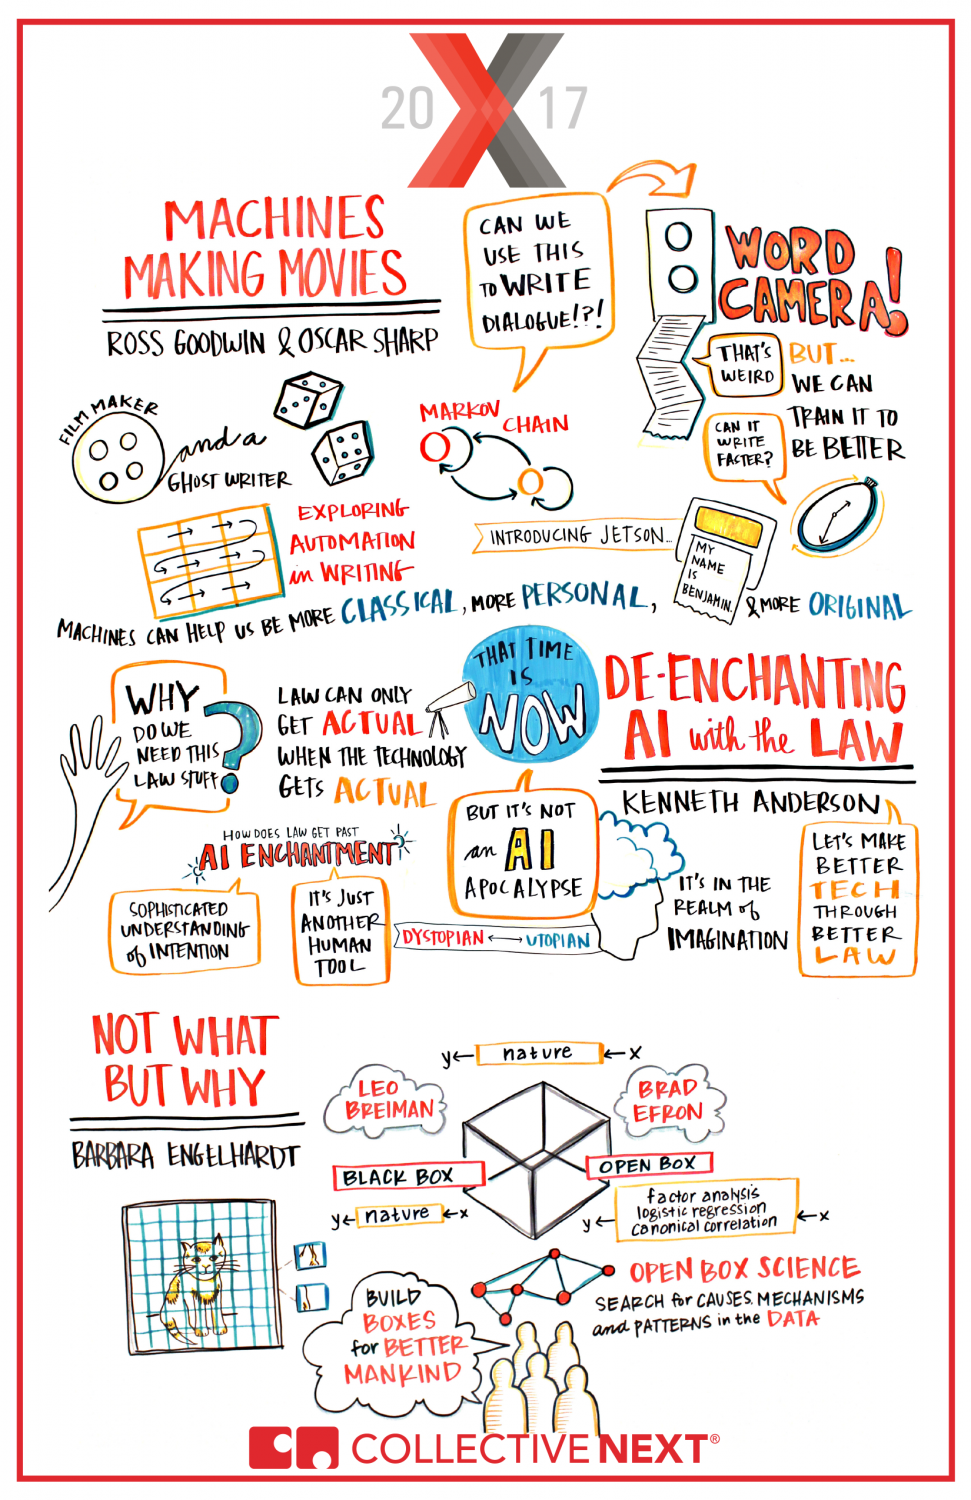 20 17
MACHINES
MAKING MOVIES
ROSS GOODWIN & OSCAR SHARP
FILM MAKER
and a
GHOST WRITER
CAN WE
USE THIS
TO WRITE
DIALOGUE!?!
WORD
CAMERA!
THAT'S
WEIRD
BUT...
WE CAN
TRAIN IT TO
BE BETTER
CAN IT
WRITE
FASTER?
MARKOV
CHAIN
EXPLORING
AUTOMATION
in WRITING
INTRODUCING JETSON...
MY
NAME
IS
BENJAMIN.
MACHINES CAN HELP US BE MORE CLASSICAL, MORE PERSONAL, & MORE ORIGINAL
WHY
DO WE
NEED THIS
LAW STUFF?
LAW CAN ONLY
GET ACTUAL
WHEN THE TECHNOLOGY
GETS ACTUAL
THAT TIME
IS
NOW
DE-ENCHANTING
AI with the LAW
KENNETH ANDERSON
HOW DOES LAW GET PAST
AI ENCHANTMENT
SOPHISTICATED
UNDERSTANDING
of INTENTION
IT'S JUST
ANOTHER
HUMAN
TOOL
BUT IT'S NOT
an AI
APOCALYPSE
DYSTOPIAN UTOPIAN
IT'S IN THE
REALM of
IMAGINATION
LET'S MAKE
BETTER
TECH
THROUGH
BETTER
LAW
NOT WHAT
BUT WHY
BARBARA ENGELHARDT
y← nature ←x
LEO
BREIMAN
BRAD
EFRON
BLACK BOX
OPEN BOX
y← nature ←x
factor analysis
logistic regression
canonical correlation
y← ←x
OPEN BOX SCIENCE
SEARCH for CAUSES, MECHANISMS
and PATTERNS in the DATA
BUILD
BOXES
for BETTER
MANKIND
COLLECTIVE NEXT®